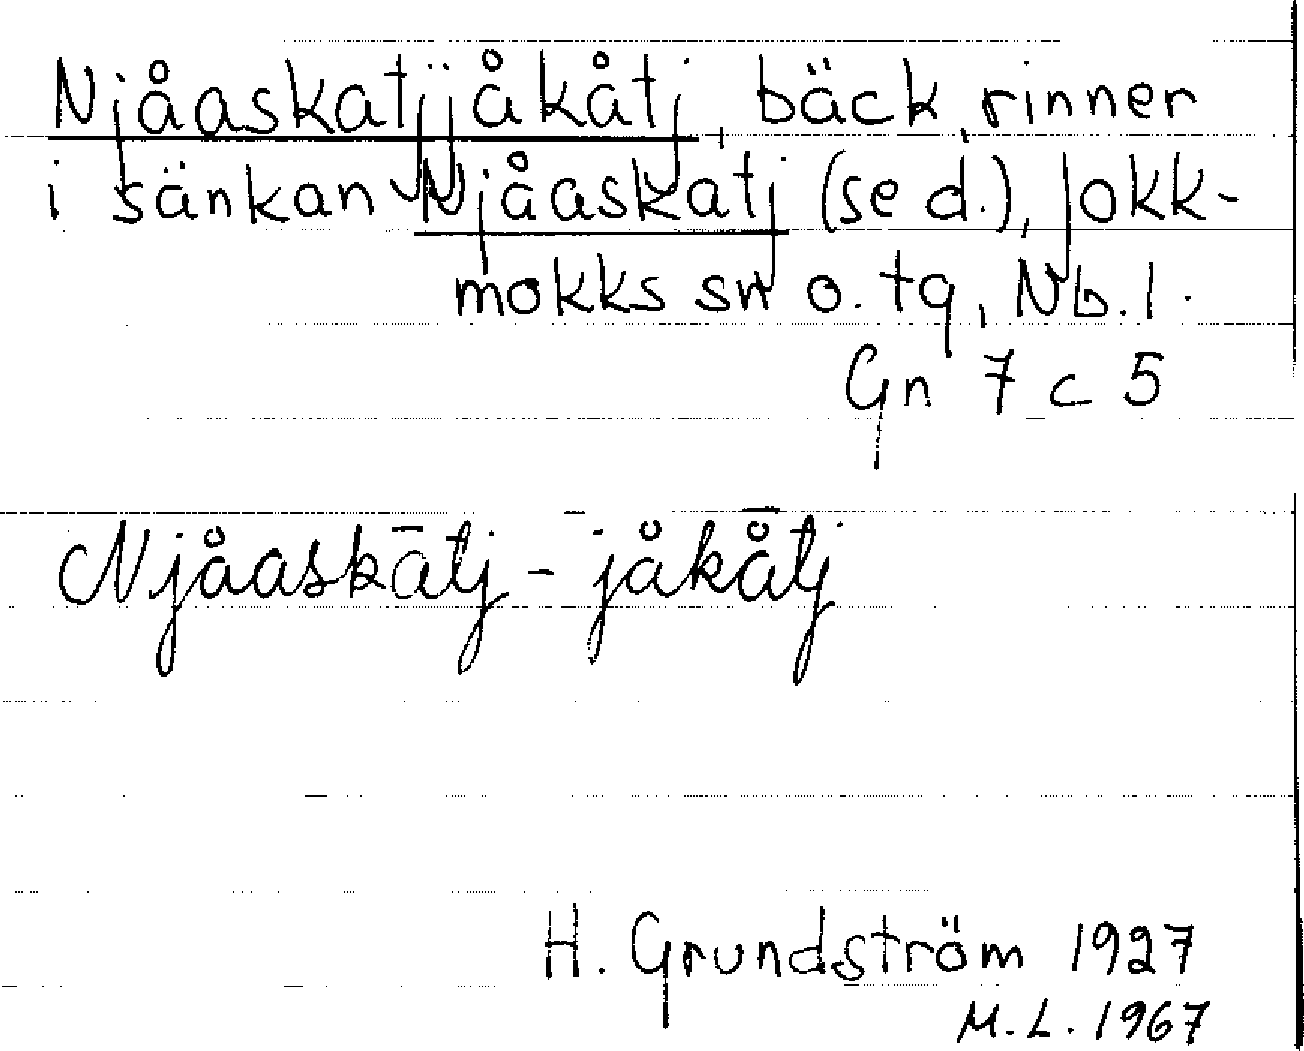 Njåaskatjjåkåtj, bäck, rinner
i sänkan Njåaskatj (se d.), Jokk-
mokks sn o. tg, Nb. l.
Gn 7 c 5
Njåaskātj - jåkå̄tj
H. Grundström 1927
M. L. 1967